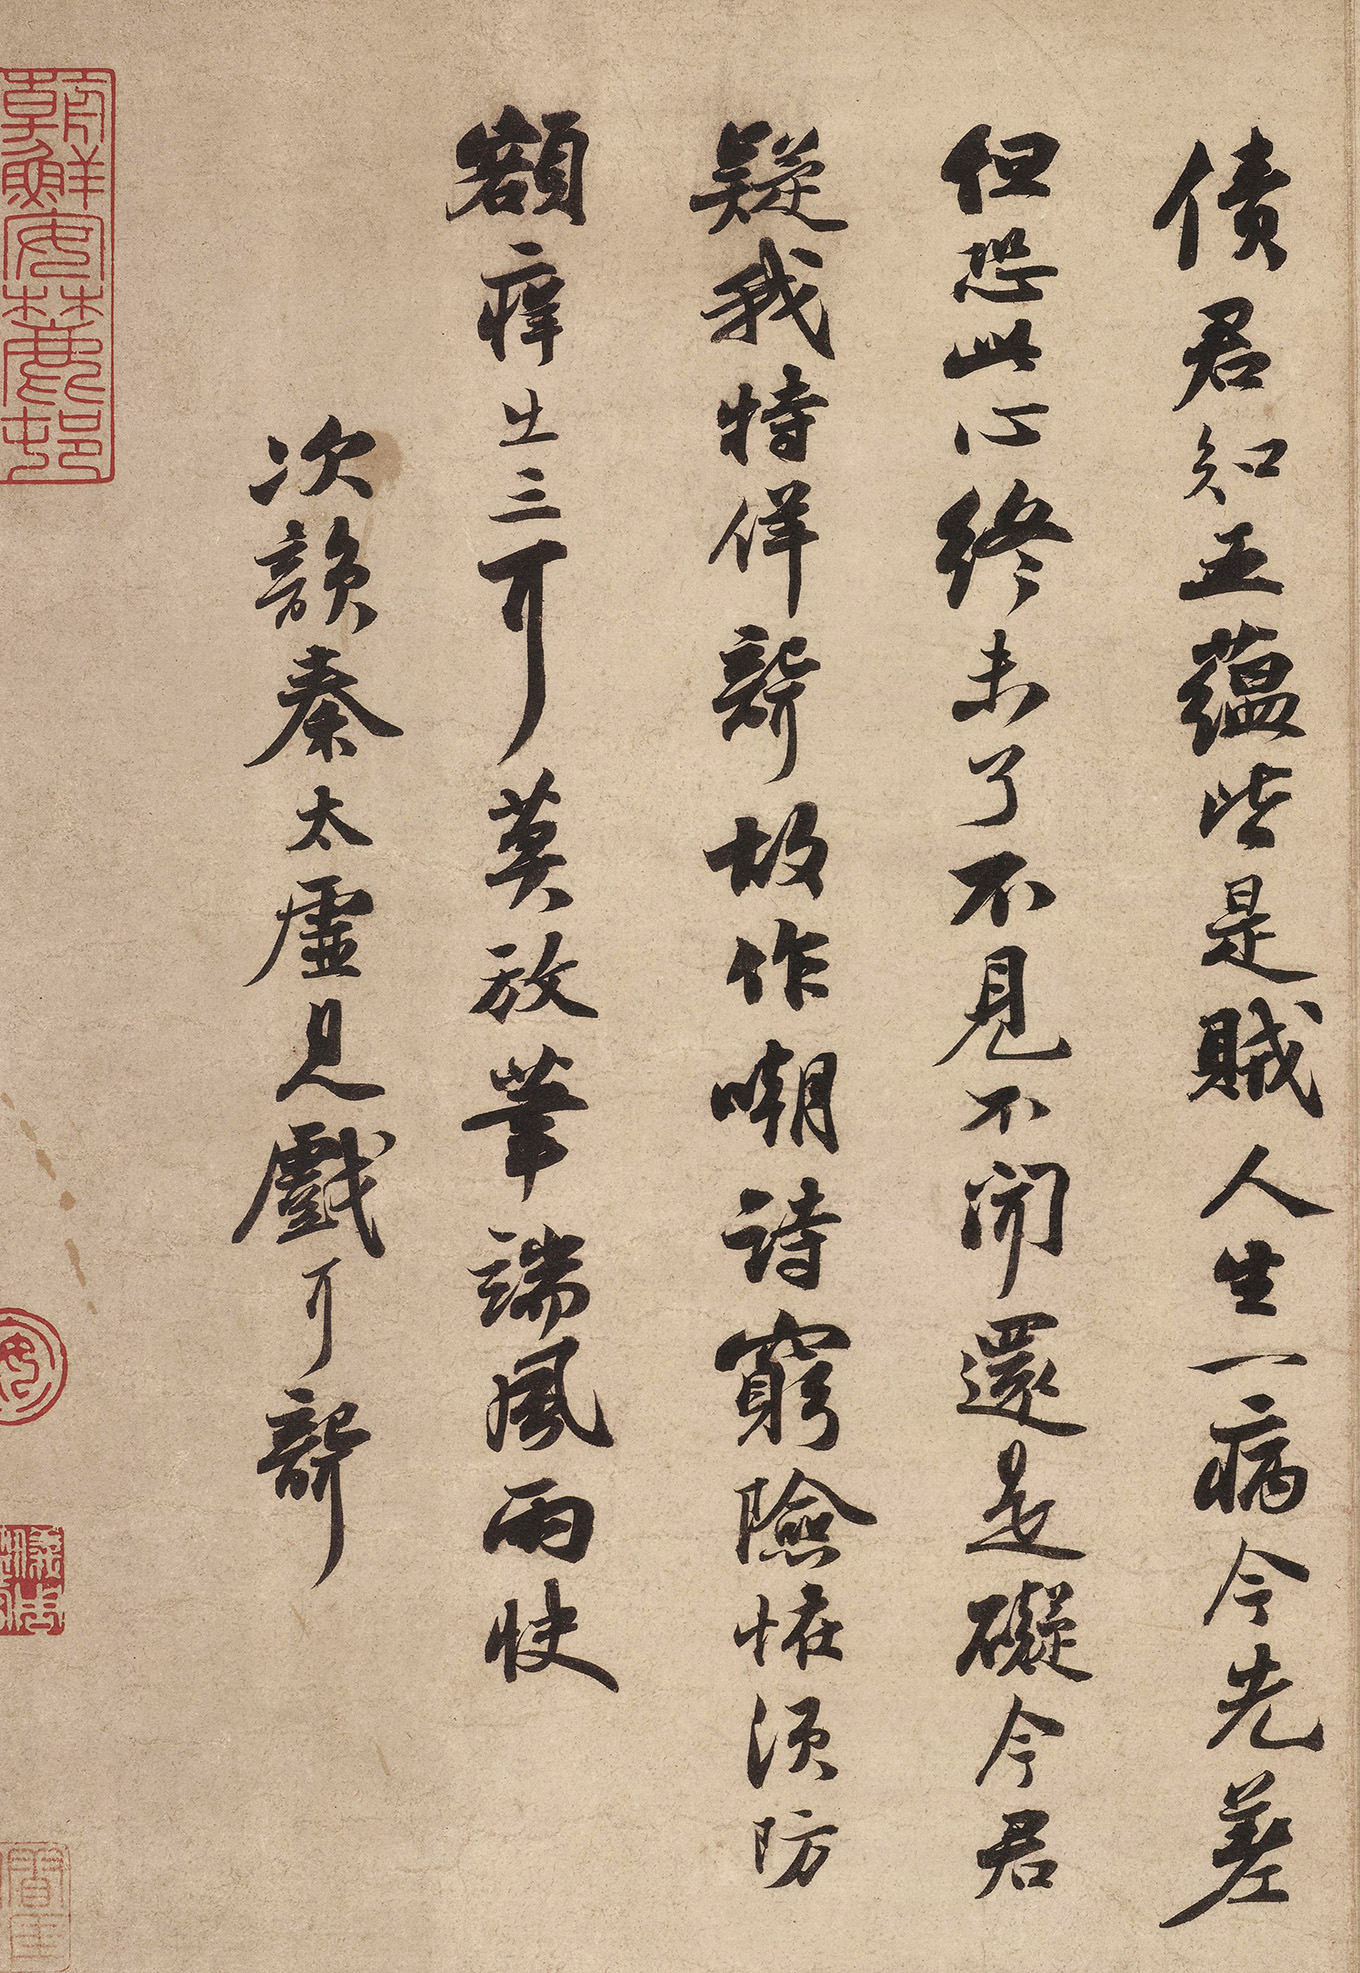 債君知五蘊皆是賊人生一病今先差
但恐此心終未了不見不聞還是礙今君
疑我特佯聾故作嘲詩窮險怪須防
額痒出三耳莫放筆端風雨快
次韻秦太虛見戲耳聾
朝鮮安麓邨